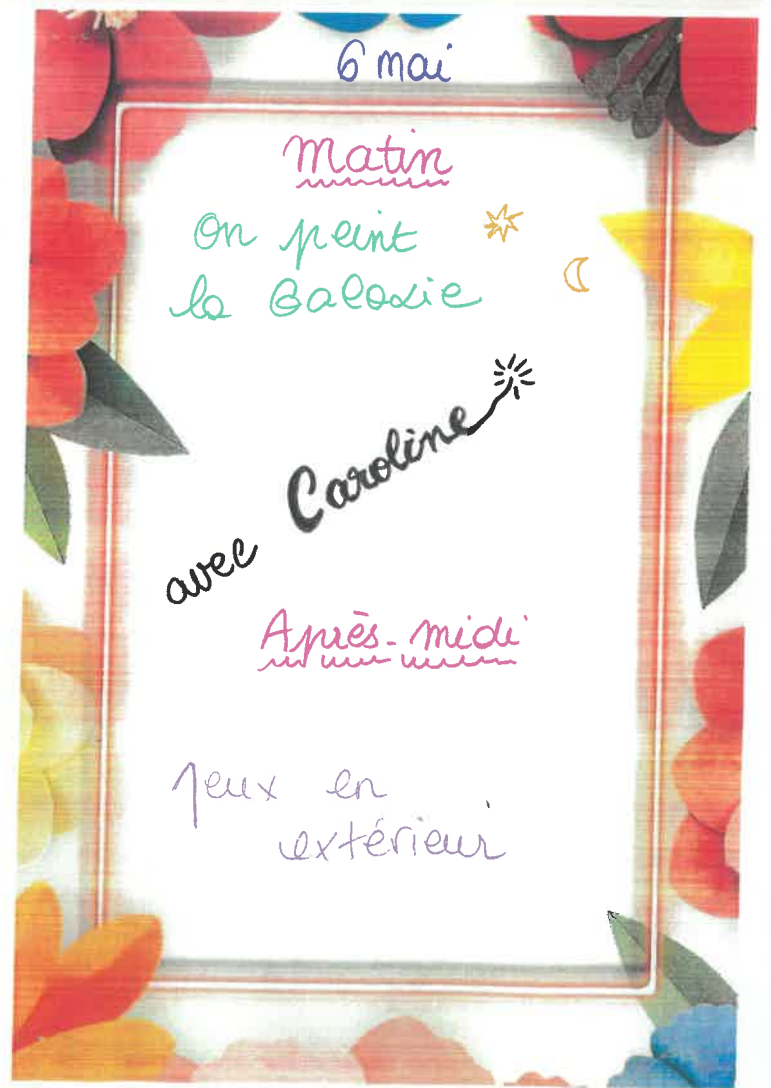 6 mai
Matin
On peint
la Galaxie
avec Caroline
Après-midi
Jeux en
extérieur